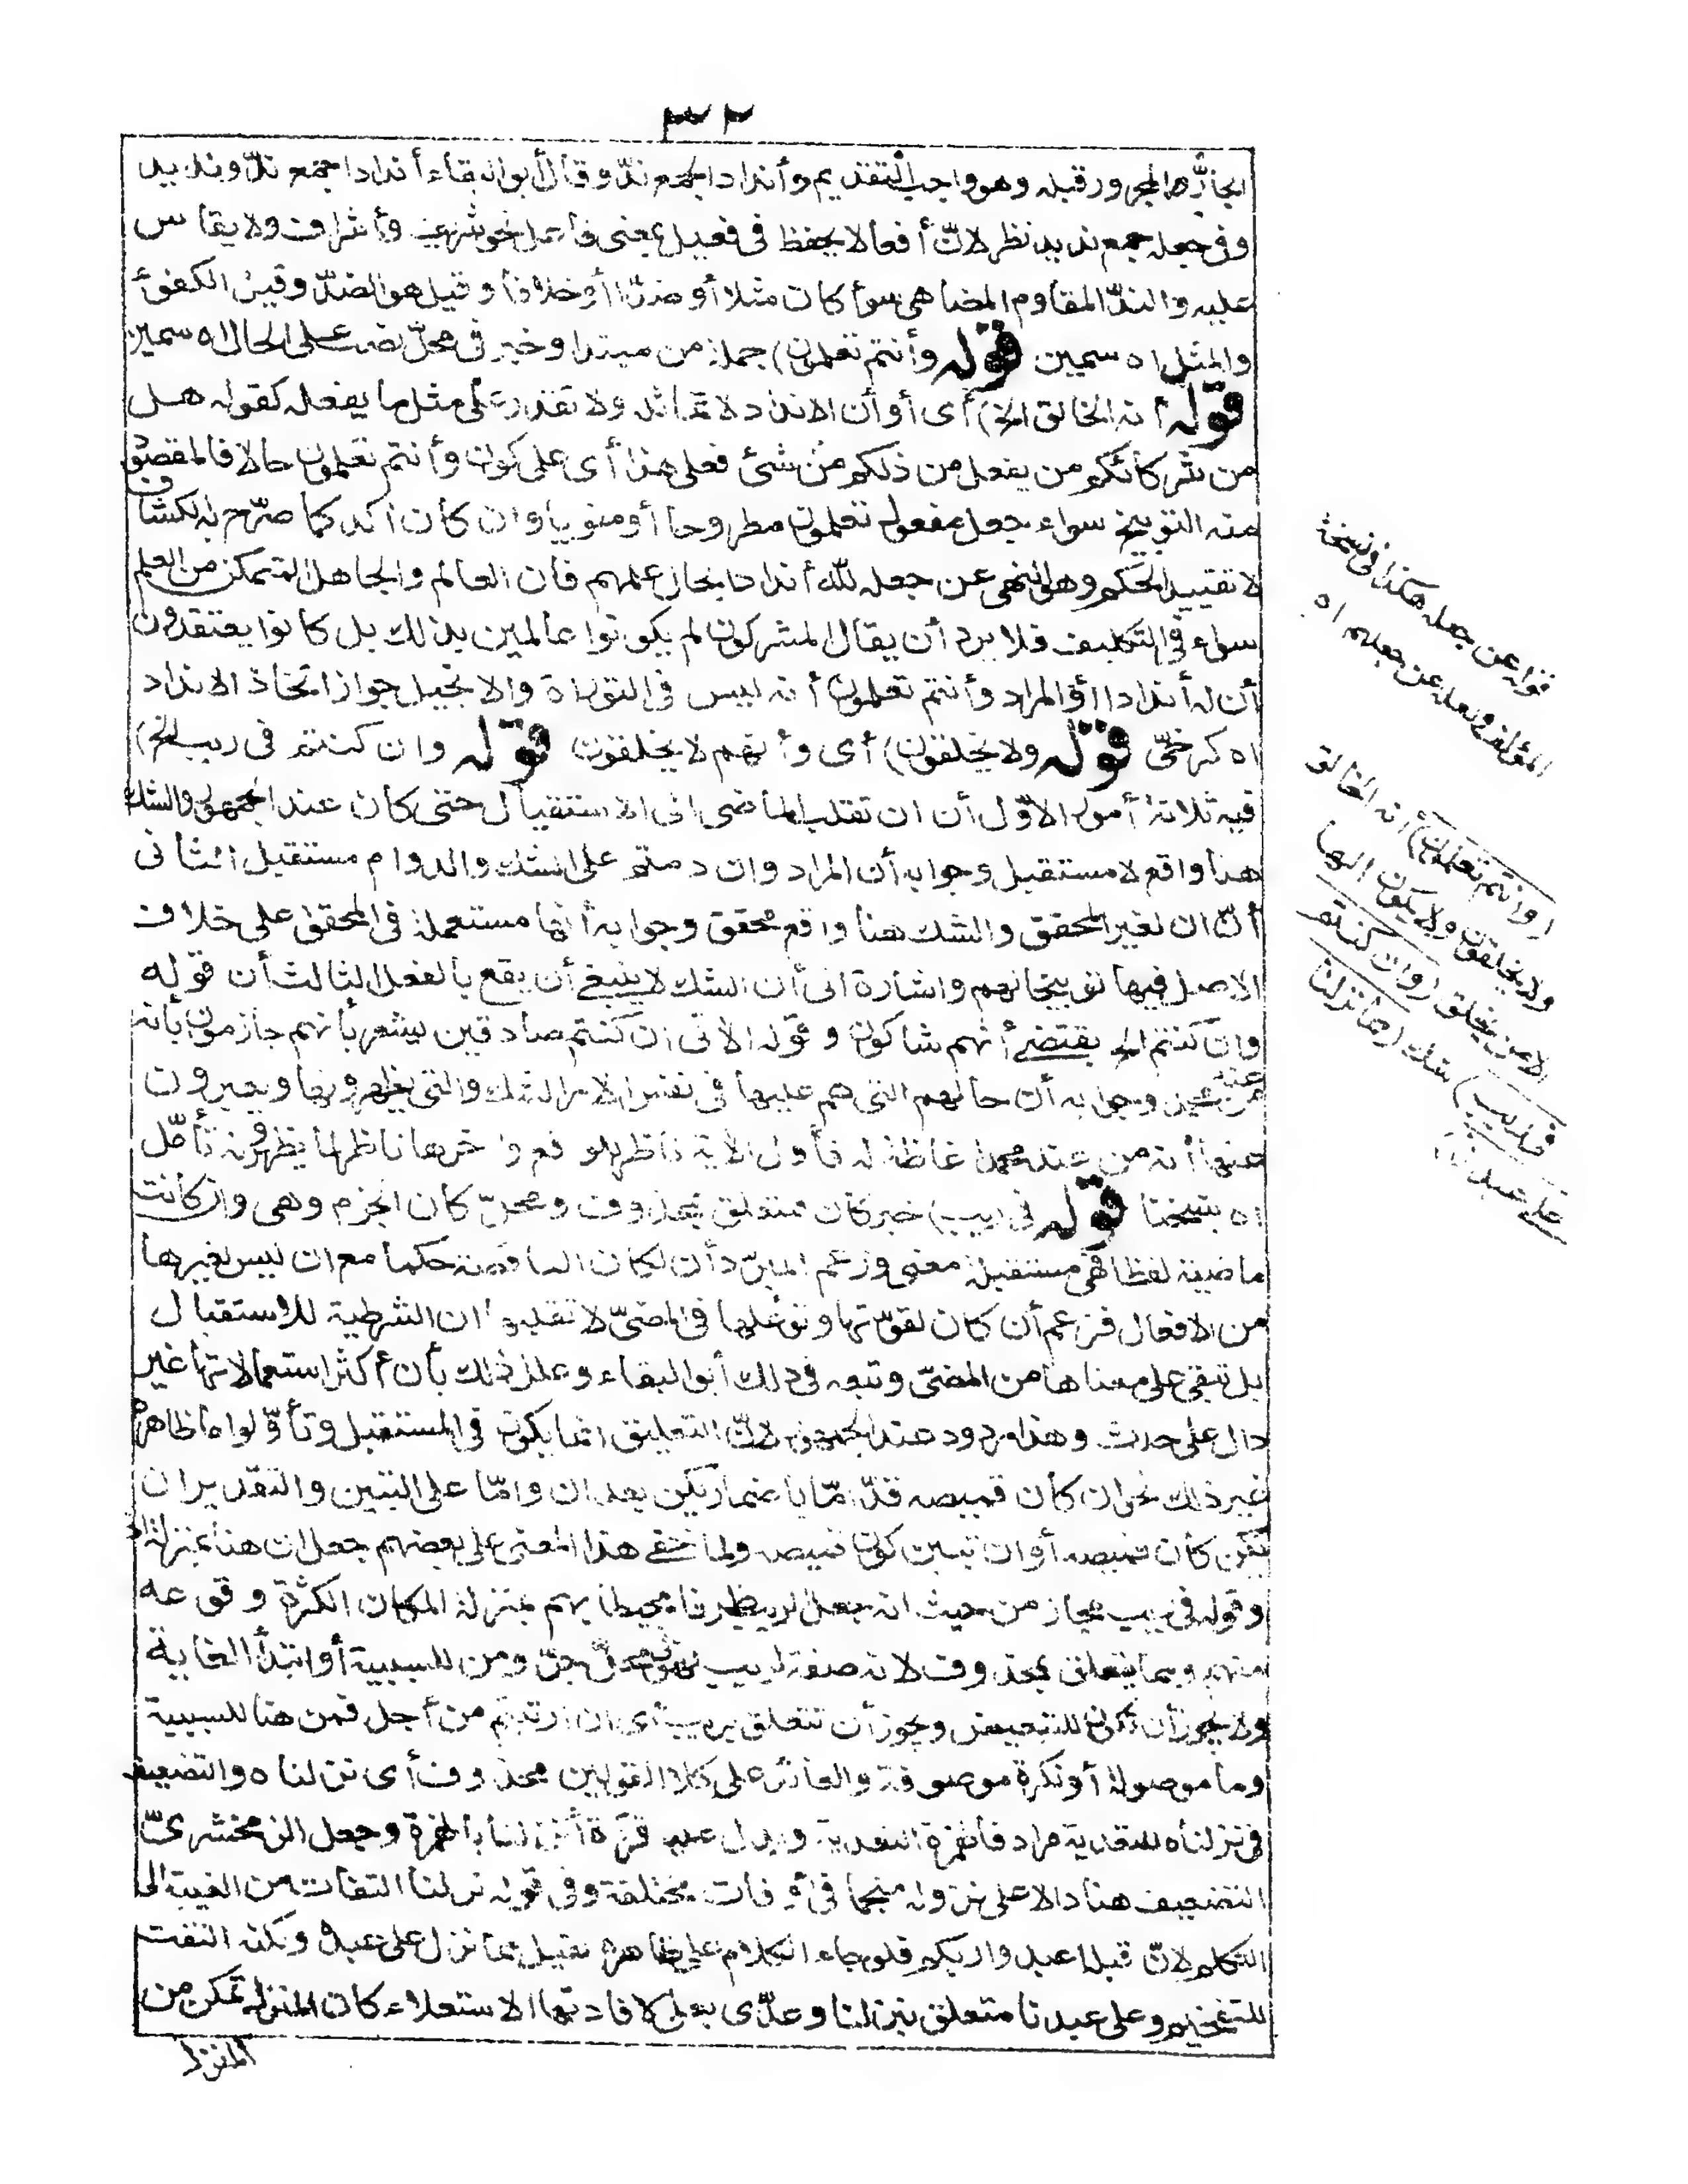 ٣٢
الجارّ والمجرور قبله وهو واجب التقديم وأندادا جمع ندّ وقال أبو البقاء أندادا جمع ندّ ونديد
وفى جعله جمع نديد نظر لانّ أفعالا يحفظ فى فعيل بمعنى فاعل نحو شريف وأشراف ولا يقاس
عليه والندّ المقاوم المضاهى سواء كان مثلا أو ضدّا أو خلافا وقيل هو الضدّ وقيل الكفؤ
والمثل اه سمين قوله وأنتم تعلمون) جملة من مبتدا وخبر فى محلّ نصب على الحال اه سمين
قوله أنه الخالق الخ) أى أو أن الانداد لا تماثله ولا تقدر على مثل ما يفعله كقوله هل
من شركائكم من يفعل من ذلكم من شئ فعلى هذا أى على كون وأنتم تعلمون حالا فالمقصود
منه التوبيخ سواء جعل مفعول تعلمون مطروحا أو منويا وان كان آكد كما صرّح به الكشاف
لا تقييد الحكم وهو النهى عن جعله لله أندادا بحال علمهم فان العالم والجاهل المتمكن من العلم
سواء فى التكليف فلا يرد أن يقال المشركون لم يكونوا عالمين بذلك بل كانوا يعتقدون
أن له أندادا أو المراد وأنتم تعلمون أنه ليس فى التوراة والانجيل جواز اتخاذ الانداد
اه كرخىّ قوله ولا يخلقون) أى وأنهم لا يخلقون قوله وان كنتم فى ريب الخ)
فيه ثلاثة أمور الاوّل أن ان تقلب الماضى الى الاستقبال حتى كان عند الجمهور والشك
هنا واقع لا مستقبل وجوابه أن المراد وان دمتم على الشك والدوام مستقبل الثانى
أنّ ان لغير المحقق والشك هنا واقع محقق وجوابه أنها مستعملة فى المحقق على خلاف
الاصل فيها توبيخا لهم واشارة الى أن الشك لا ينبغى أن يقع بالفعل الثالث أن قوله
وان كنتم الخ يقتضى أنهم شاكون وقوله الآتى ان كنتم صادقين يشعر بأنهم جازمون بأنه
من عند وجوابه أن حالهم التى هم عليها فى نفس الامر الشك والتى يظهرونها ويعبرون
عنها أنه من عند محمد اغاظة له فأول الآية ناظر للواقع وآخرها ناظر لما يظهرونه تأمّل
اه شيخنا قوله فى ريب) خبر كان متعلق بمحذوف ومحلّ كان الجزم وهى وان كانت
ماضية لفظا فهى مستقبلة معنى وزعم المبرّد أن لكان الناقصة حكما مع ان ليس لغيرها
من الافعال فزعم أن كان لقوّتها وتوغلها فى المضىّ لا تقلبها ان الشرطية للاستقبال
بل تبقى على معناها من المضىّ وتبعه فى ذلك أبو البقاء وعلل ذلك بأن أكثر استعمالاتها غير
دال على حدث وهذا مردود عند الجمهور لانّ التعليق انما يكون فى المستقبل وتأوّلوا ما ظاهره
غير ذلك نحو ان كان قميصه قدّ امّا باضمار يكن بعد ان وامّا على التبين والتقدير ان
يكن كان قميصه أو ان تبين كون قميصه ولما خفى هذا المعنى على بعضهم جعل ان هنا بمنزلة اذ
وقوله فى ريب مجاز من حيث انه جعل الريب ظرفا محيطا بهم بمنزلة المكان لكثرة وقوعه
منهم ومما يتعلق بمحذوف لانه صفة لريب فهو فى محلّ جرّ ومن للسببية أو ابتدأ الغاية
ولا يجوز أن تكون للتبعيض ويجوز أن تتعلق بريب أى ان ارتبتم من أجل فمن هنا للسببية
وما موصولة أو نكرة موصوفة والعائد على كلا القولين محذوف أى نزلناه والتضعيف
فى نزلناه للتعدية مراد فالهمزة التعدية ويدل عليه قرءة أنزلنا بالهمزة وجعل الزمخشرىّ
التضعيف هنا دالا على نزوله منجما فى أوقات مختلفة وفى قوله نزلنا التفات من الغيبة الى
التكلم لانّ قبله اعبدوا ربكم فلو جاء الكلام على ظاهره لقيل مما نزل على عبده ولكنه التفت
للتفخيم وعلى عبدنا متعلق بنزلنا وعدّى بعلى لافادتها الاستعلاء كان المنزل تمكن من
المنزل
قوله عن جعله هكذا فى نسخة
المؤلف ولعله عن جعلهم اه
(وأنتم تعلمون) أنه الخالق
ولا يخلقون ولا يكون الها
الا من يخلق (وان كنتم
فى ريب) شك (مما نزلنا
على عبدنا)